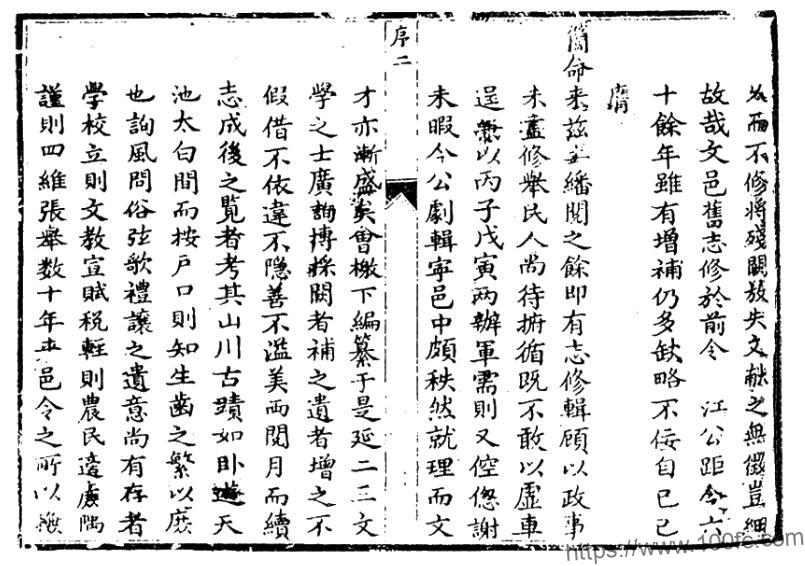 而不修將殘闕放失文獻之無徵豈細
故哉文邑舊志修於前令　江公距今六
十餘年雖有增補仍多缺略不佞自己巳
膺
簡命來茲土繙閱之餘即有志修輯顧以政事
未盡修舉民人尚待拊循既不敢以虛車
逞兼以丙子戊寅兩辦軍需則又倥傯謝
未暇今公劇輯寧邑中頗秩然就理而文
序二
才亦漸盛矣會檄下編纂于是延二三文
學之士廣詢博採闕者補之遺者增之不
假借不依違不隱善不濫美兩閱月而續
志成後之覽者考其山川古蹟如卧遊天
池太白間而按戶口則知生齒之繁以庶
也詢風問俗弦歌禮讓之遺意尚有存者
學校立則文教宣賦稅輕則農民邉廉隅
謹則四維張舉數十年來邑令之所以撫
https://www.100fc.com